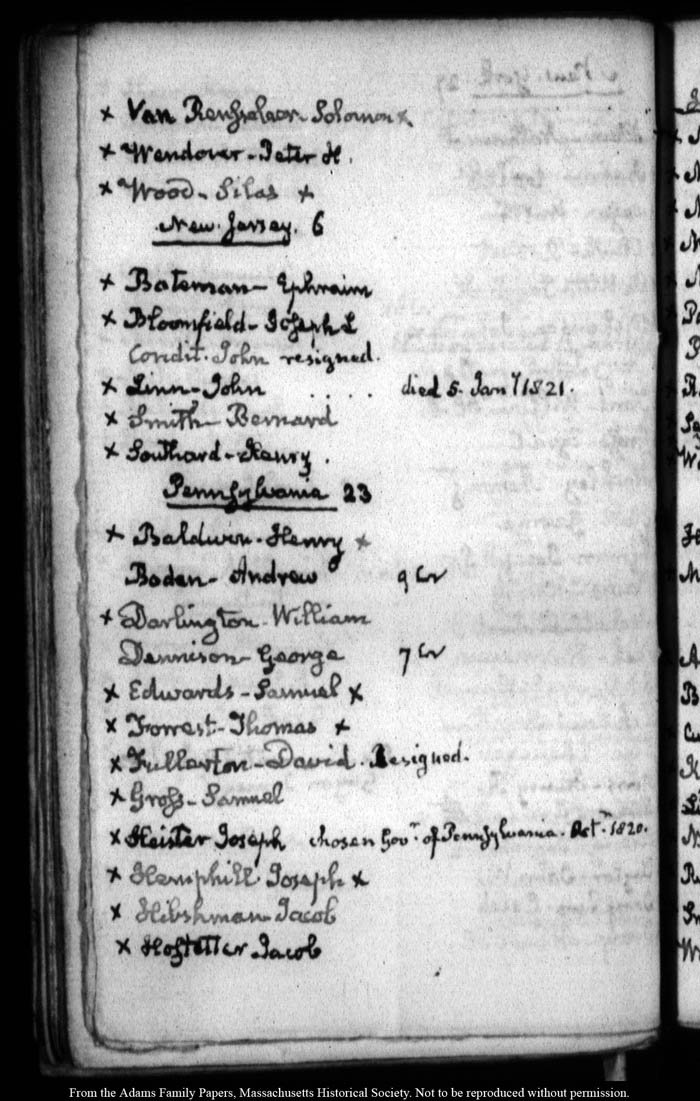 × Van Rensselaer Solomon ×
× Wendover - Peter H.
× Wood - Silas ×
New-Jersey. 6
× Bateman - Ephraim
× Bloomfield - Joseph
Condit. John resigned.
× Linn - John . . . . died 5. Jany 1821.
× Smith - Bernard
× Southard - Henry.
Pennsylvania 23
× Baldwin - Henry ×
Boden - Andrew 9 Cr
× Darlington - William
Dennison - George 7 Cr
× Edwards - Samuel ×
× Forrest - Thomas ×
× Fullerton - David. Resigned.
× Gross - Samuel
× Heister Joseph chosen Govr. of Pennsylvania. Octr. 1820.
× Hemphill. Joseph ×
× Hibshman - Jacob
× Hostetter Jacob
From the Adams Family Papers, Massachusetts Historical Society. Not to be reproduced without permission.